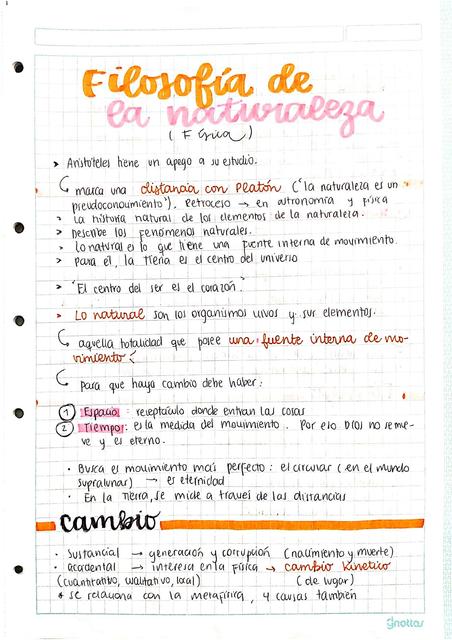 Filosofía de
la naturaleza
(Física)
> Aristóteles tiene un apego a su estudio.
marca una distancia con Platón ("la naturaleza es un
pseudoconocimiento"). Retroceso → en astronomía y física
> La historia natural de los elementos de la naturaleza.
> Describe los fenómenos naturales.
> Lo natural es lo que tiene una fuente interna de movimiento.
> Para él, la tierra es el centro del universo
> "El centro del ser es el corazón".
> Lo natural son los organismos vivos y sus elementos.
aquella totalidad que posee una fuente interna de mo-
vimiento.
para que haya cambio debe haber:
1 Espacio: receptáculo donde entran las cosas
2 Tiempo: es la medida del movimiento. Por eso DIOS no se mue-
ve y es eterno.
• Busca el movimiento más perfecto: el circular (en el mundo
supralunar) → es eternidad
• En la Tierra, se mide a través de las distancias
Cambio
• Sustancial → generación y corrupción (nacimiento y muerte)
• accidental → interesa en la Física → cambio kinético
(cuantitativo, cualitativo, local) (de lugar)
* se relaciona con la metafísica, 4 causas también
gnottas